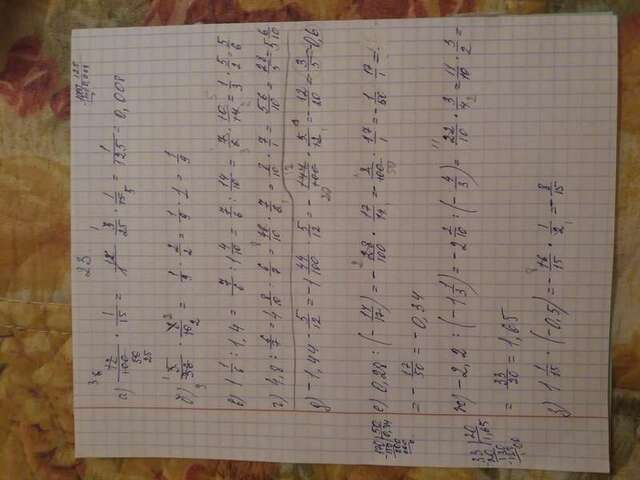 23
а) 12/100 · 1/15 = 3/25 · 1/15 = 1/125 = 0,008
б) · = 1/9 · 2/2 = 1/9 · 1 = 1/9
в) 1 1/6 : 1,4 = 7/6 : 1 4/10 = 7/6 : 14/10 = 7/6 · 10/14 = 1/3 · 5/2 = 5/6
г) 4,8 : 6/7 = 4 8/10 · 6/7 = 48/10 · 7/6 = 8/10 · 7/1 = 56/10 = 28/5 = 5 6/10
д) -1,44 · 5/12 = -1 44/100 · 5/12 = - 144/100 · 5/12 = - 12/20 = 3/5 = 0,6
е) 0,28 : (- 14/17) = - 28/100 · 17/14 = - 2/100 · 17/1 = - 1/50 17/1 =
= - 17/50 = -0,34
ж) -2,2 : (-1 1/3) = -2 2/10 : (- 4/3) = 22/10 · 3/4 = 11/10 · 3/2 =
= 33/20 = 1,65
з) 1 1/15 · (-0,5) = - 16/15 · 1/2 = - 8/15